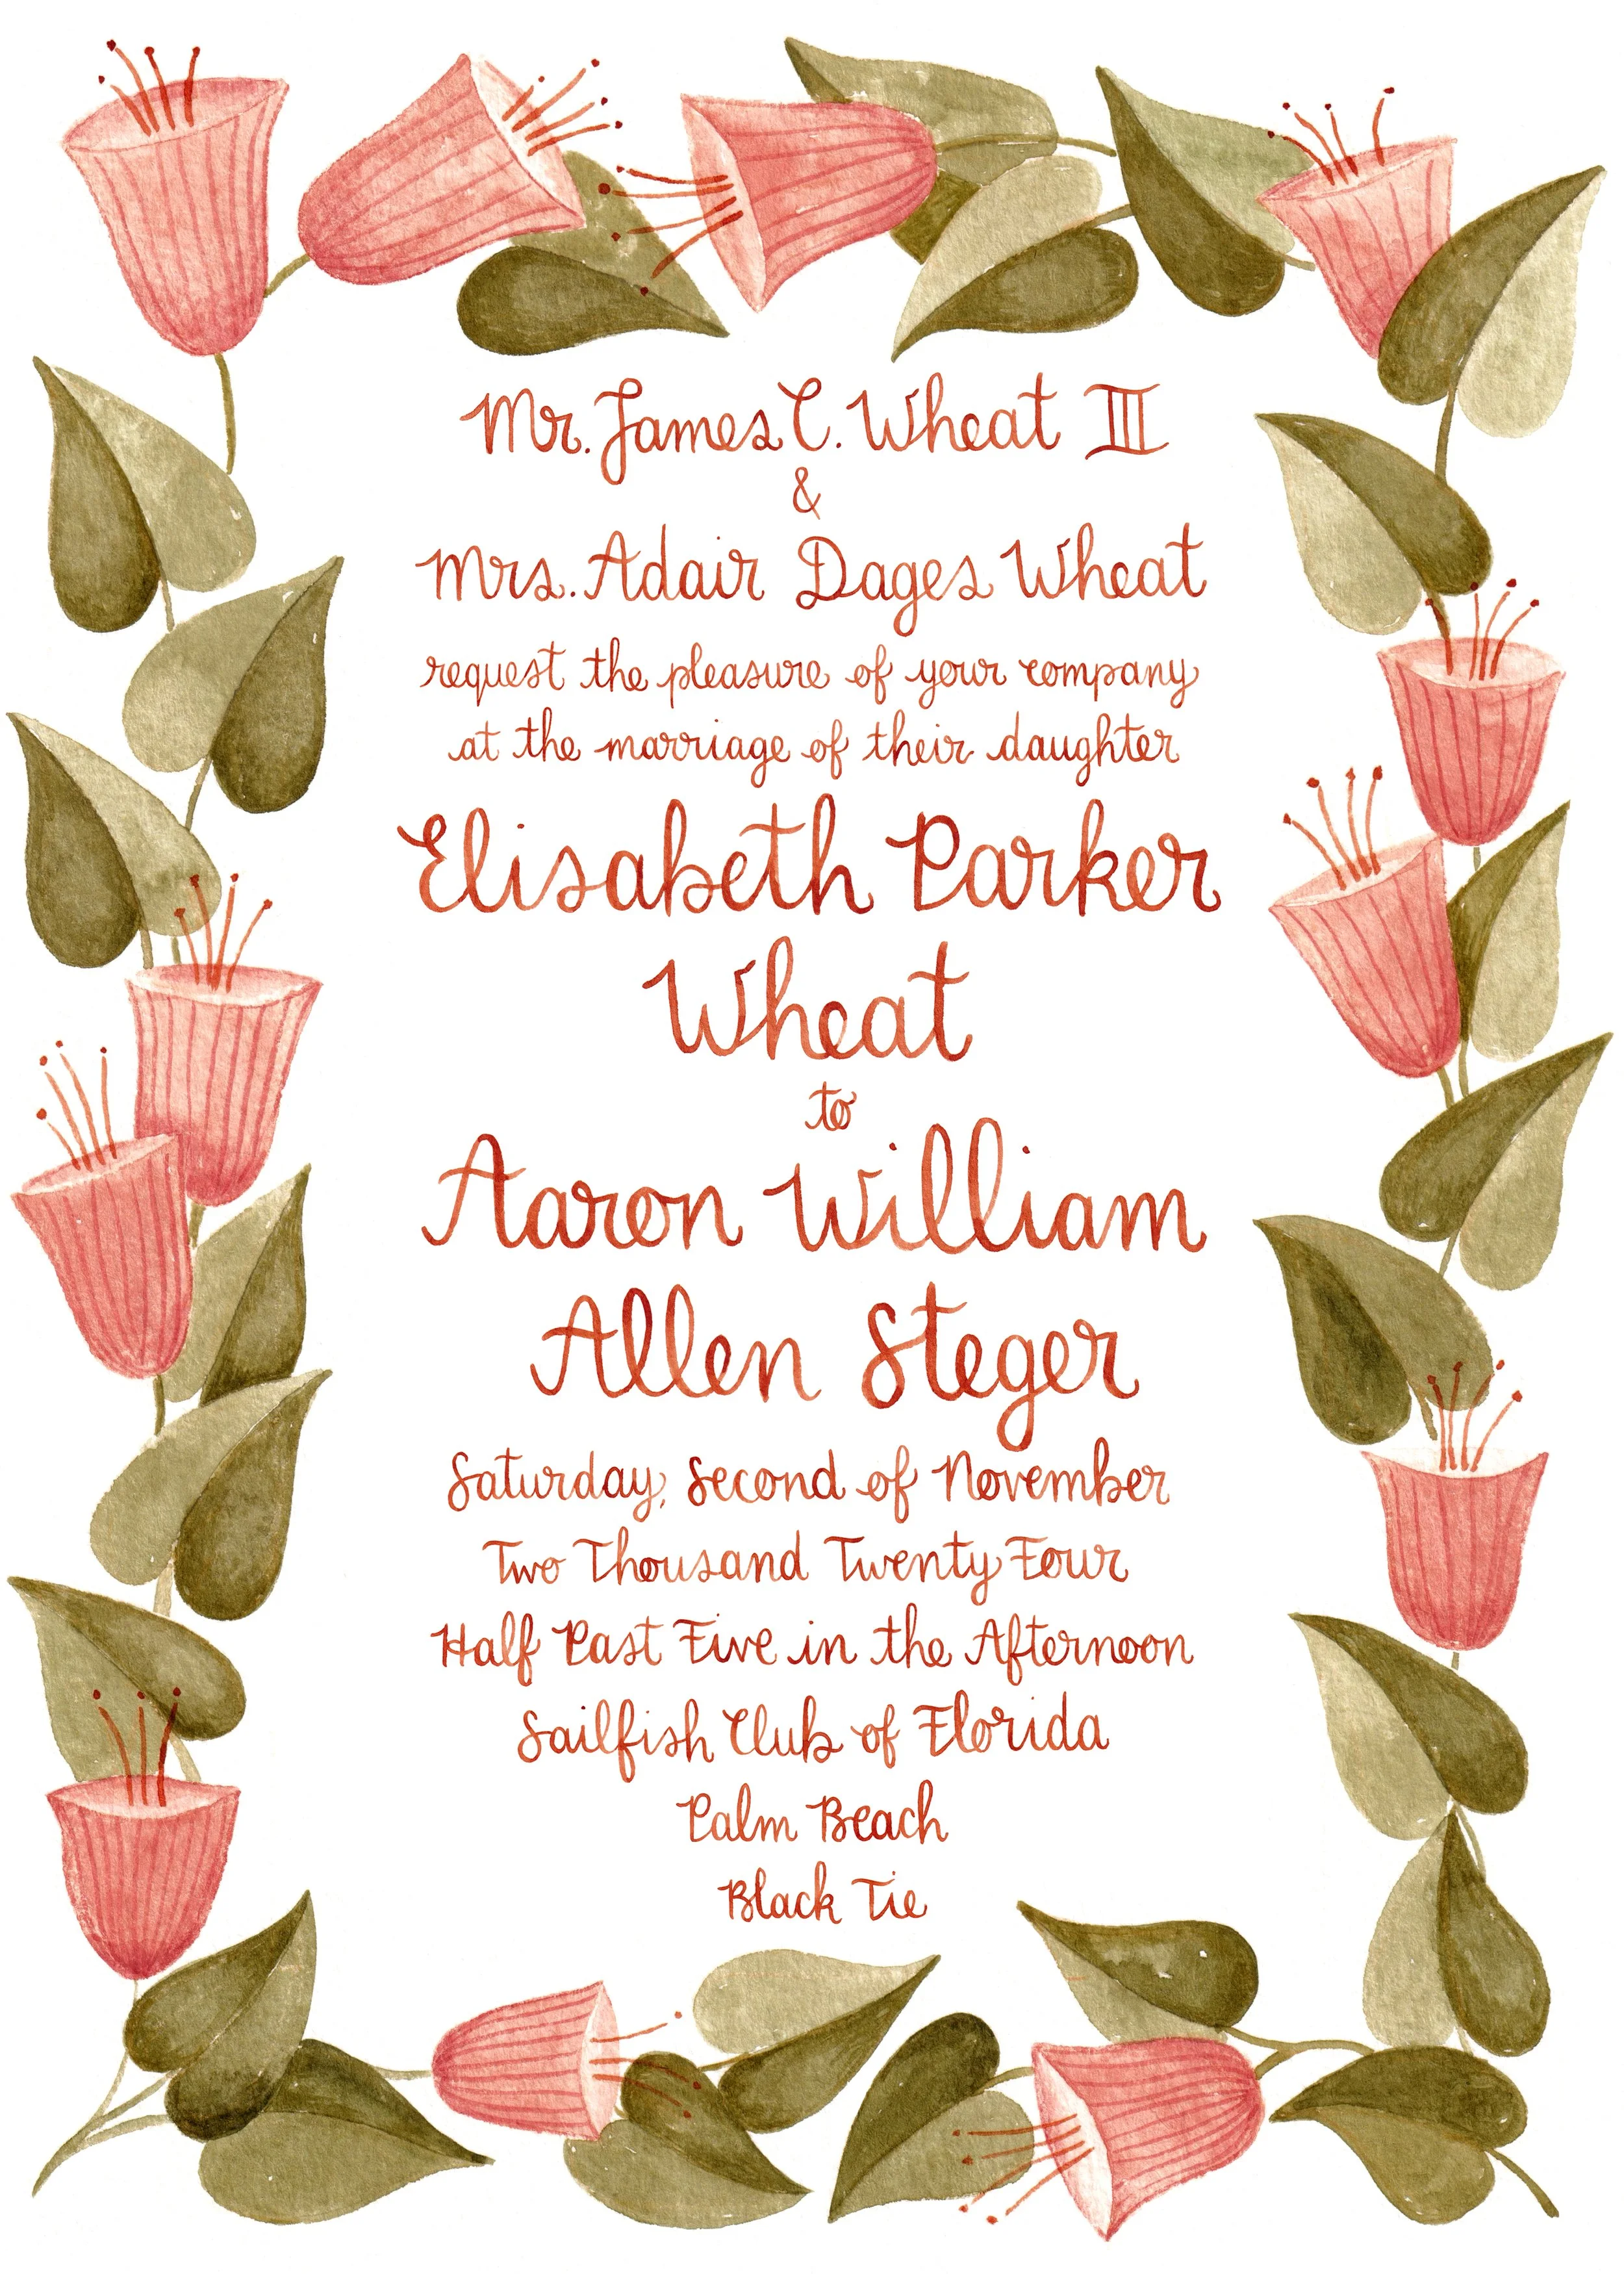 Mr. James C. Wheat III
&
Mrs. Adair Dages Wheat
request the pleasure of your company
at the marriage of their daughter
Elisabeth Parker
Wheat
to
Aaron William
Allen Steger
Saturday, Second of November
Two Thousand Twenty Four
Half Past Five in the Afternoon
Sailfish Club of Florida
Palm Beach
Black Tie